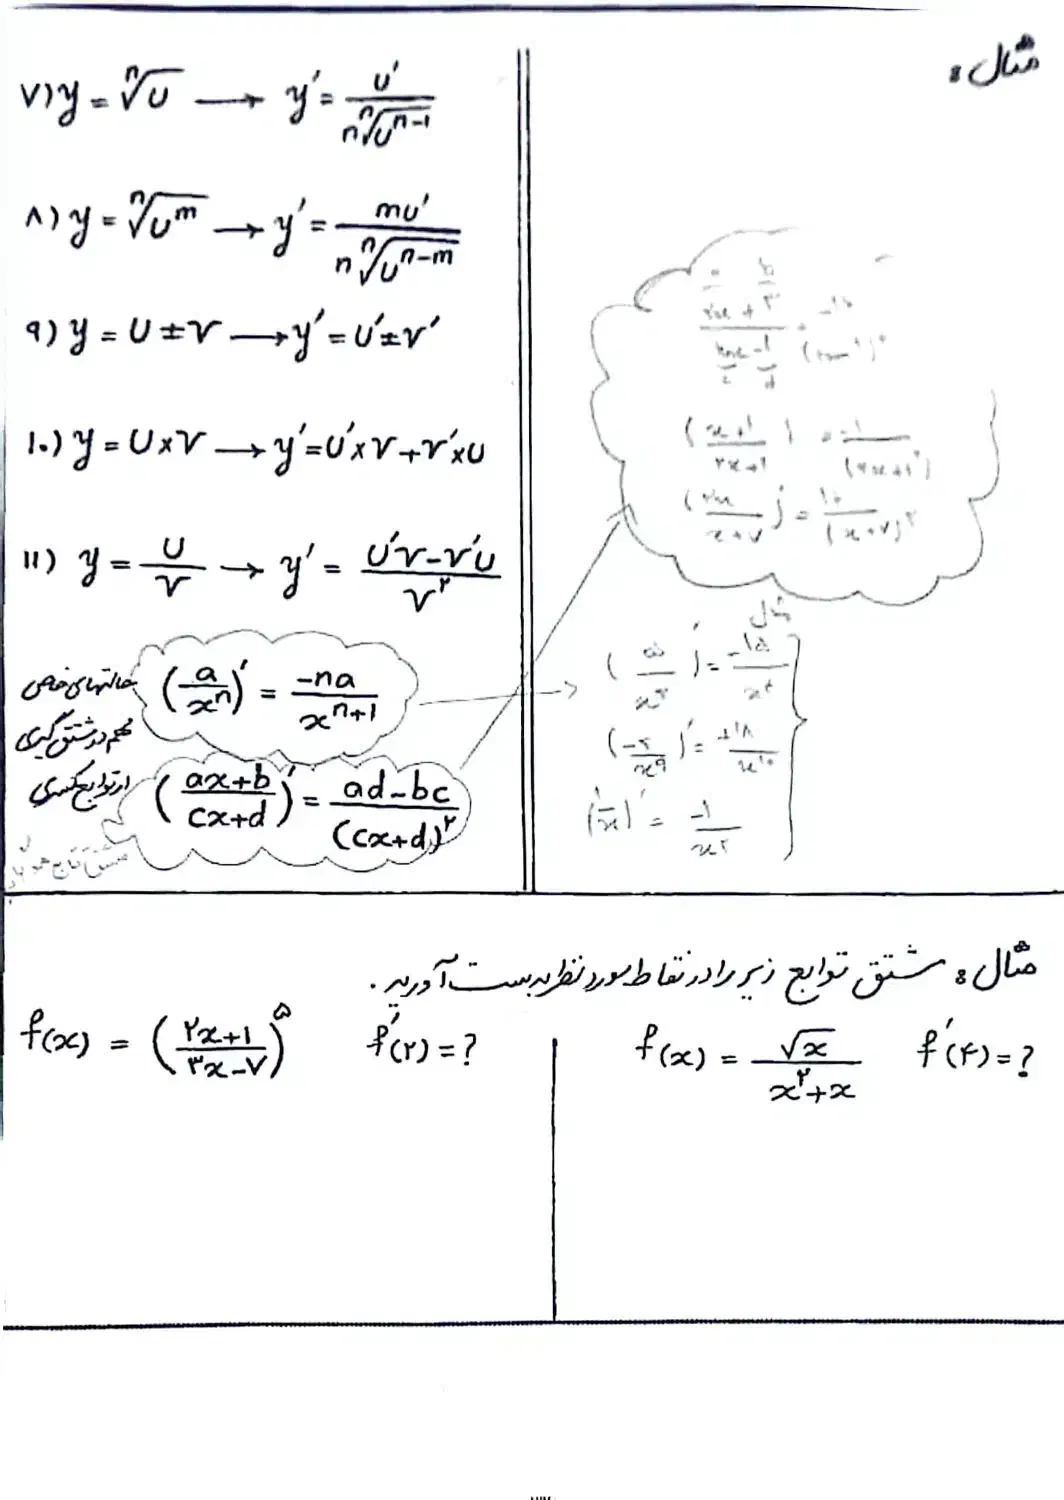 ۷) y = ⁿ√U ⟶ y' = U' / n ⁿ√U^(n-1)
۸) y = ⁿ√U^m ⟶ y' = mU' / n ⁿ√U^(n-m)
۹) y = U ± V ⟶ y' = U' ± V'
۱۰) y = U × V ⟶ y' = U' × V + V' × U
۱۱) y = U / V ⟶ y' = (U'V - V'U) / V^۲
حالتهای خاص
مهم در مشتق گیری
از توابع کسری
(a / x^n)' = -na / x^(n+1)
((ax+b) / (cx+d))' = (ad-bc) / (cx+d)^۲
مثال :
((x+۱) / (۲x+۱))' = -۱ / (۲x+۱)^۲
((۲x) / (x+۷))' = ۱۴ / (x+۷)^۲
مثال
(۵ / x^۳)' = -۱۵ / x^۴
(-۲ / x^۹)' = +۱۸ / x^۱۰
(۱ / x)' = -۱ / x^۲
مثال : مشتق توابع زیر را در نقاط مورد نظر بدست آورید .
f(x) = ((۲x+۱) / (۳x-۷))^۵ f'(۲) = ?
f(x) = √x / (x^۲+x) f'(۴) = ?